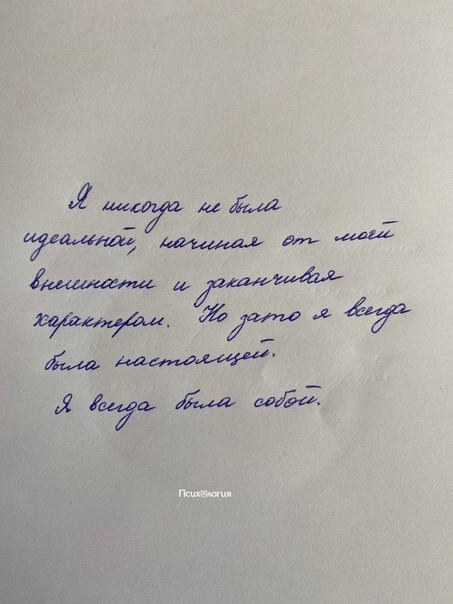 Я никогда не была
идеальной, начиная от моей
внешности и заканчивая
характером. Но зато я всегда
была настоящей.
Я всегда была собой.
Психология